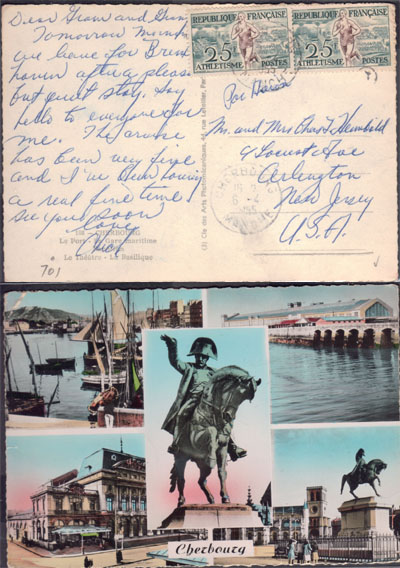 Dear Gram and Gus,
Tomorrow morning
we leave for Brem
haven after a pleasant
but quiet stay. Say
hello to everyone for
me. The cruise
has been very fine
and I've been having
a real fine time!
see you soon
Love
REPUBLIQUE FRANÇAISE
25F
ATHLETISME POSTES
REPUBLIQUE FRANÇAISE
25F
ATHLETISME POSTES
Mr. and Mrs Chas F.
Locust Ave
Arlington
New Jersey
U.S.A.
CHERBOURG
MANCHE
CHERBOURG
Le Port - La Gare maritime
Le Théâtre - La Basilique
701
Cherbourg